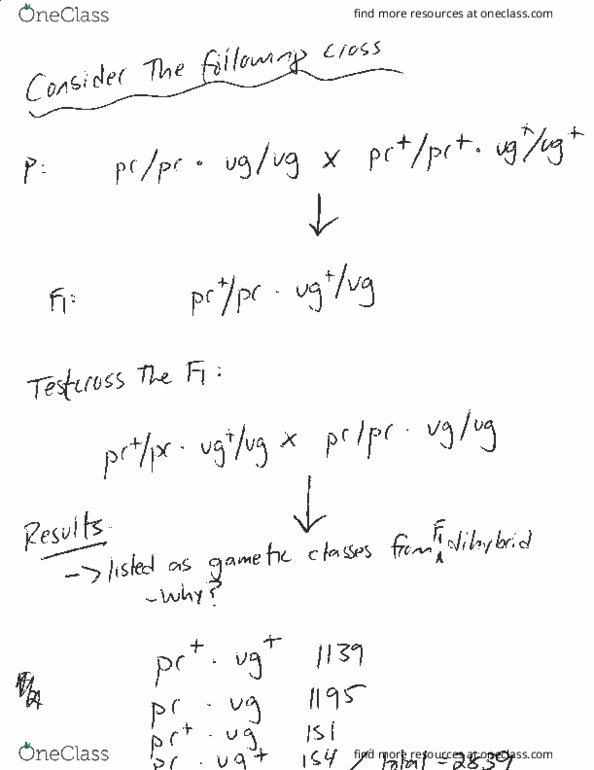 OneClass
find more resources at oneclass.com
Consider The following cross
P: pr/pr · vg/vg x pr+/pr+ · vg+/vg+
F1: pr+/pr · vg+/vg
Testcross The F1:
pr+/pr · vg+/vg x pr/pr · vg/vg
Results
-> listed as gametic classes from F1 dihybrid
- why?
pr+ · vg+ 1139
pr · vg 1195
pr+ · vg 151
pr · vg+ 154 / Total = 2839
OneClass
find more resources at oneclass.com